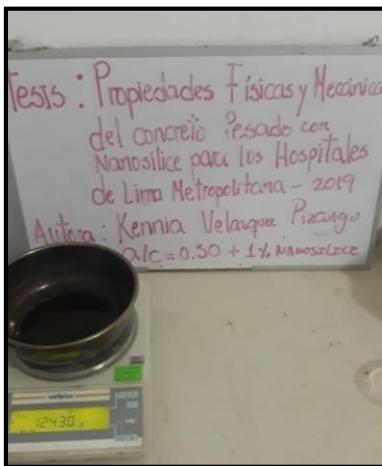 Tesis : Propiedades Físicas y Mecánica
del concreto Pesado con
Nanosilice para los Hospitales
de Lima Metropolitana - 2019
Autora : Kennia Velasquez Pizango
a/c = 0.50 + 1% NANOSILICE
sartorius
12430